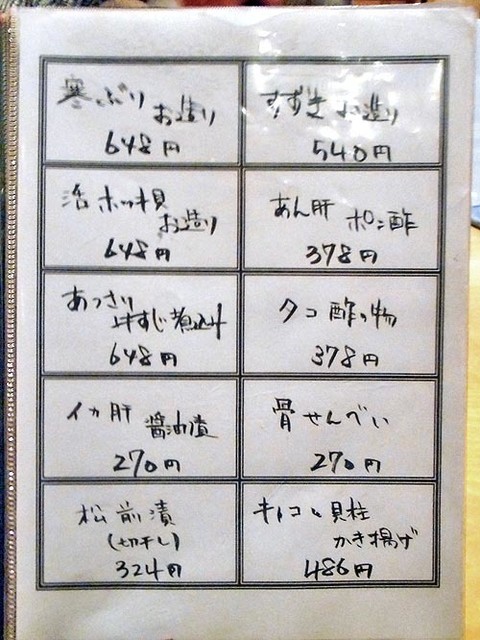 寒ぶり お造り
648円
すずき お造り
540円
活ホッキ貝
お造り
648円
あん肝 ポン酢
378円
あっさり
牛すじ煮込み
648円
タコ酢の物
378円
イカ肝 醤油漬
270円
骨せんべい
270円
松前漬
(切干し)
324円
キノコと貝柱
かき揚げ
486円